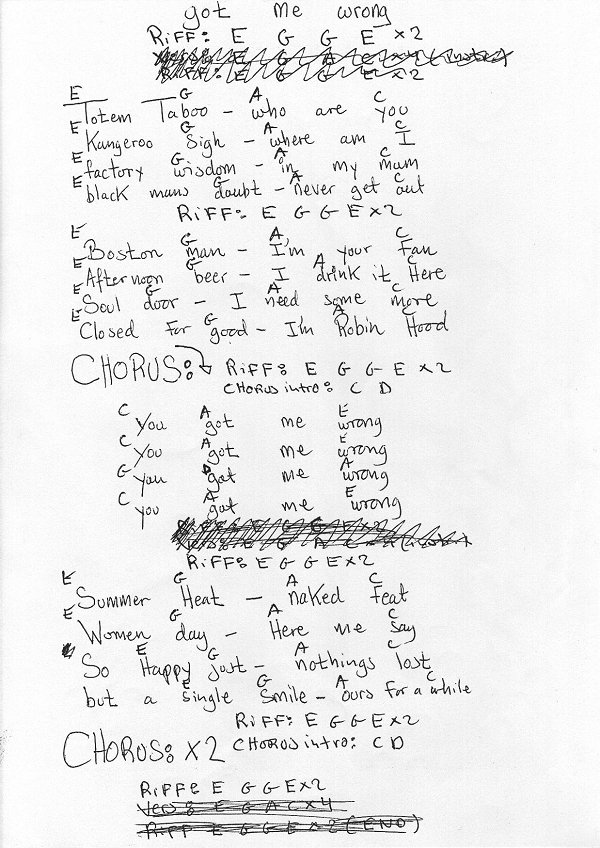 got me wrong
RIFF: E G G E x2
E G A C
Totem Taboo - who are you
E G A C
Kangeroo Sigh - where am I
E G A C
factory wisdom - in my mum
E G A C
black mans doubt - never get out
RIFF: E G G E x2
E G A C
Boston man - I'm your fan
E G A C
Afternoon beer - I drink it Here
E G A C
Soul door - I need some more
E G A C
Closed for good - I'm Robin Hood
CHORUS: RIFF: E G G E x2
CHORUS intro: C D
C A E
You got me wrong
C A E
You got me wrong
G D A
you got me wrong
C A E
you got me wrong
RIFF: E G G E x2
E G A C
Summer Heat - naked feat
E G A C
Women day - Here me say
E G A C
So Happy just - nothings lost
E G A C
but a single smile - ours for a while
RIFF: E G G E x2
CHORUS: x2 CHORUS intro: C D
RIFF: E G G E x2
Vers: E G A C x4
RIFF E G G E x2 (END)